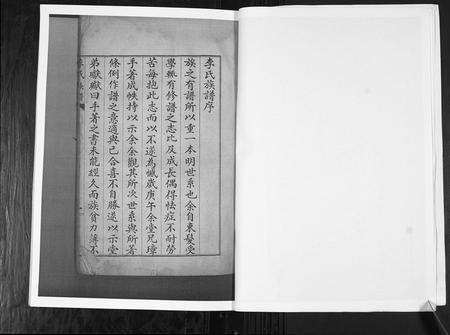 李氏族譜序
族之有譜所以重一本明世系也余自束髮受
學輒有修譜之志比及成長偶得怯症不耐勞
苦每抱此志而以不遂為憾歲庚午余堂兄璋
手著成帙持以示余余觀其所次世系與所著
條例作譜之意適與己合喜不自勝遂以示堂
弟嶽嶽曰手著之書未能經久而族貧力薄不